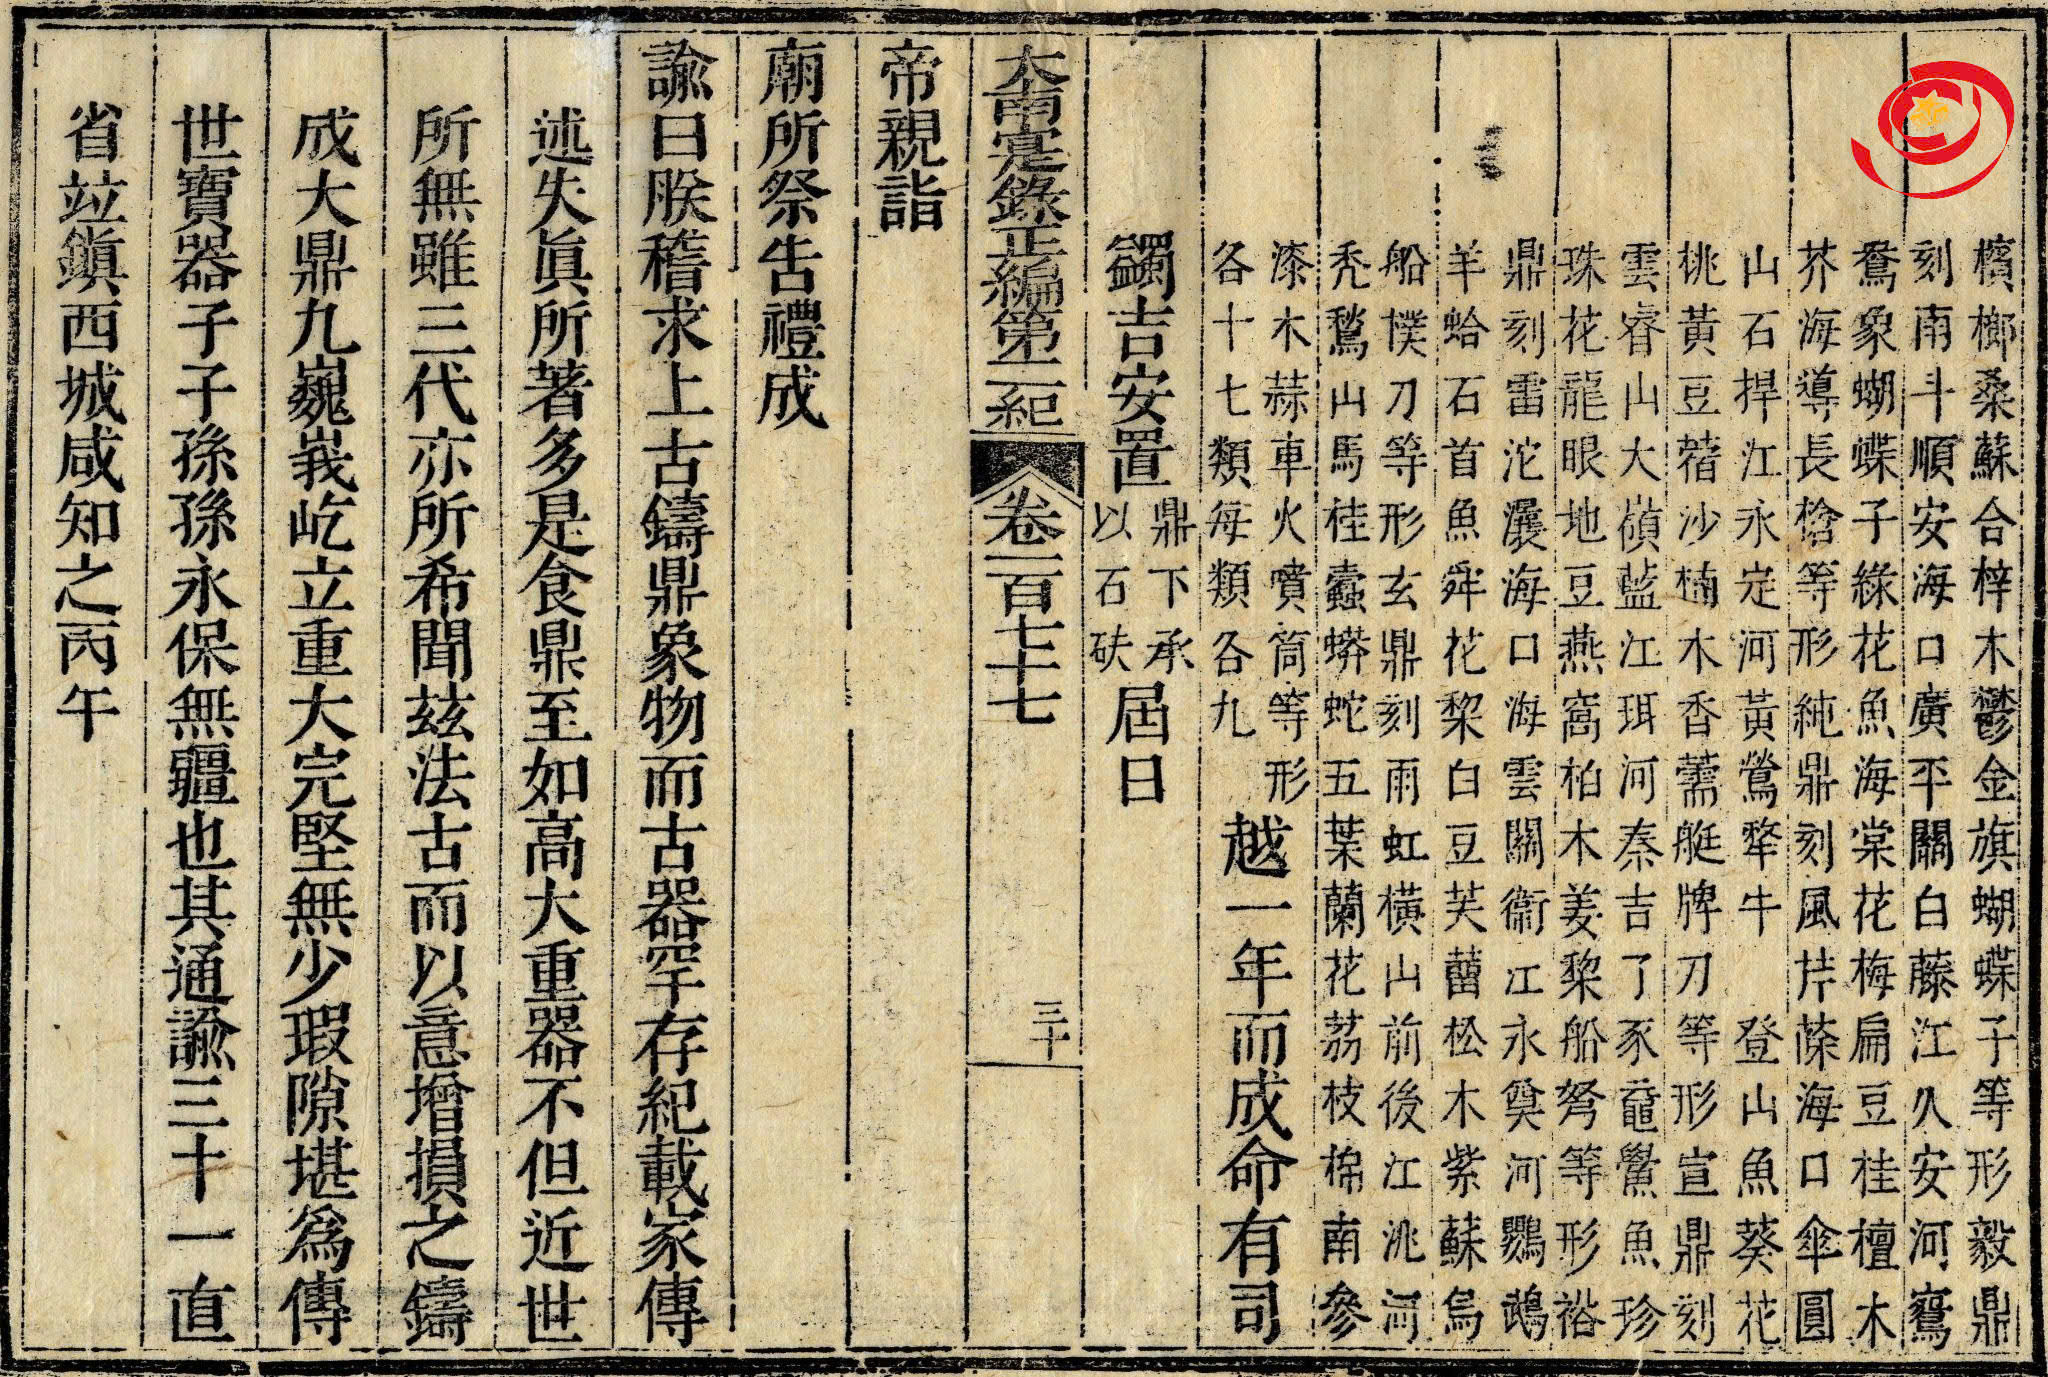 檳榔桑蘇合梓木鬱金旗蝴蝶子等形毅鼎
刻南斗順安海口廣平關白藤江久安河鴛
鴦象蝴蝶子綠花魚海棠花梅扁豆桂檀木
芥海導長槍等形純鼎刻風芹蔯海口傘圓
山石捍江永定河黃鶯犂牛登山魚葵花
桃黃豆䔽沙楠木香薷艇牌刀等形宣鼎刻
雲睿山大嶺藍江珥河秦吉了豕黿鱟魚珍
珠花龍眼地豆燕窩柏木姜棃船弩等形裕
鼎刻雷沱灢海口海雲關衞江永奠河鸚鵡
羊蛤石首魚舜花棃白豆芙蕾松木紫蘇烏
船樸刀等形玄鼎刻雨虹橫山前後江洮河
禿鶖山馬桂蠹蟒蛇五葉蘭花荔枝棉南參
漆木蒜車火噴筒等形
各十七類每類各九越一年而成命有司
蠲吉安置鼎下承以石砆屆日
大南寔錄正編第二紀 卷一百七十七 三十
帝親詣
廟所祭告禮成
諭曰朕稽求上古鑄鼎象物而古器罕存紀載家傳
述失眞所著多是食鼎至如高大重器不但近世
所無雖三代亦所希聞玆法古而以意增損之鑄
成大鼎九巍峩屹立重大完堅無少瑕隙堪爲傳
世寶器子子孫孫永保無疆也其通諭三十一直
省竝鎭西城咸知之丙午